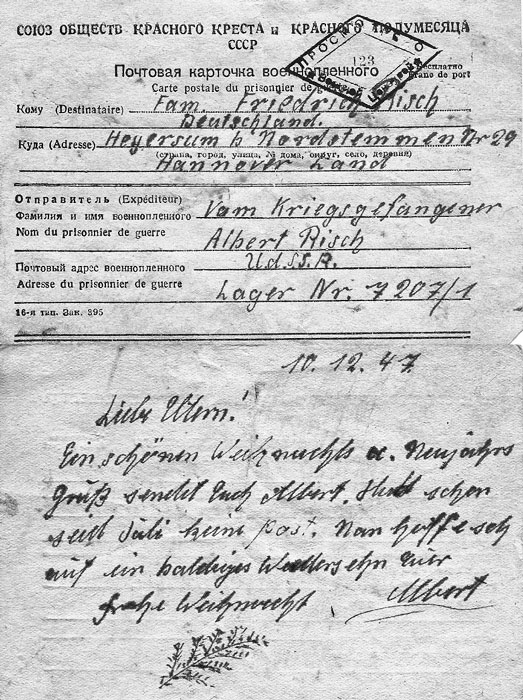 СОЮЗ ОБЩЕСТВ КРАСНОГО КРЕСТА и КРАСНОГО ПОЛУМЕСЯЦА
СССР
ПРОСМО
123
Почтовая карточка военнопленного
Бесплатно
Carte postale du prisonnier de guerre
Franc de port
Кому (Destinataire) Fam. Friedrich Risch
Deutschland.
Куда (Adresse) Heyersum b. Nordstemmen Nr 29
(страна, город, улица, № дома, округ, село, деревня)
Hannover Land
Отправитель (Expéditeur)
Фамилия и имя военнопленного Vam Kriegsgefangener
Nom du prisonnier de guerre Albert Risch
Почтовый адрес военнопленного UdSSR.
Adresse du prisonnier de guerre Lager Nr. 7207/1
16-я тип. Зак. 395
10.12.47.
Liebe Eltern!
Ein schönen Weihnachts u. Neujahrs
Gruß sendet Euch Albert. schon
seid Juli keine post. Nun hoffe ich
auf ein baldiges Wiedersehn Euer
frohe Weihnacht Albert